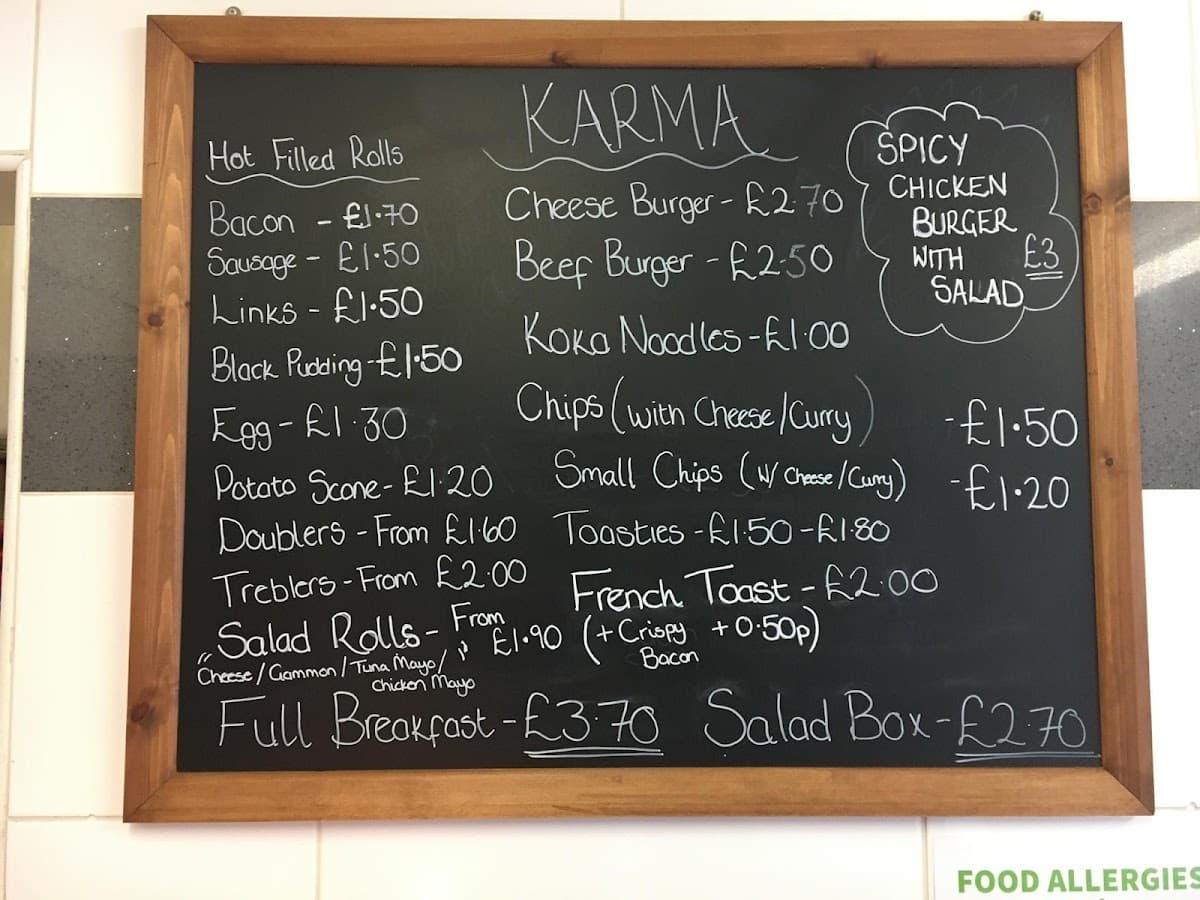 KARMA
Hot Filled Rolls
Bacon - £1.70
Sausage - £1.50
Links - £1.50
Black Pudding - £1.50
Egg - £1.30
Potato Scone - £1.20
Doublers - From £1.60
Treblers - From £2.00
Salad Rolls - From £1.90
"Cheese / Gammon / Tuna Mayo / "
Chicken Mayo
Cheese Burger - £2.70
Beef Burger - £2.50
Koka Noodles - £1.00
Chips (with Cheese / Curry) - £1.50
Small Chips (w/ Cheese / Curry) - £1.20
Toasties - £1.50 - £1.80
French Toast - £2.00
(+ Crispy Bacon +0.50p)
SPICY
CHICKEN
BURGER
WITH £3
SALAD
Full Breakfast - £3.70 Salad Box - £2.70
FOOD ALLERGIES